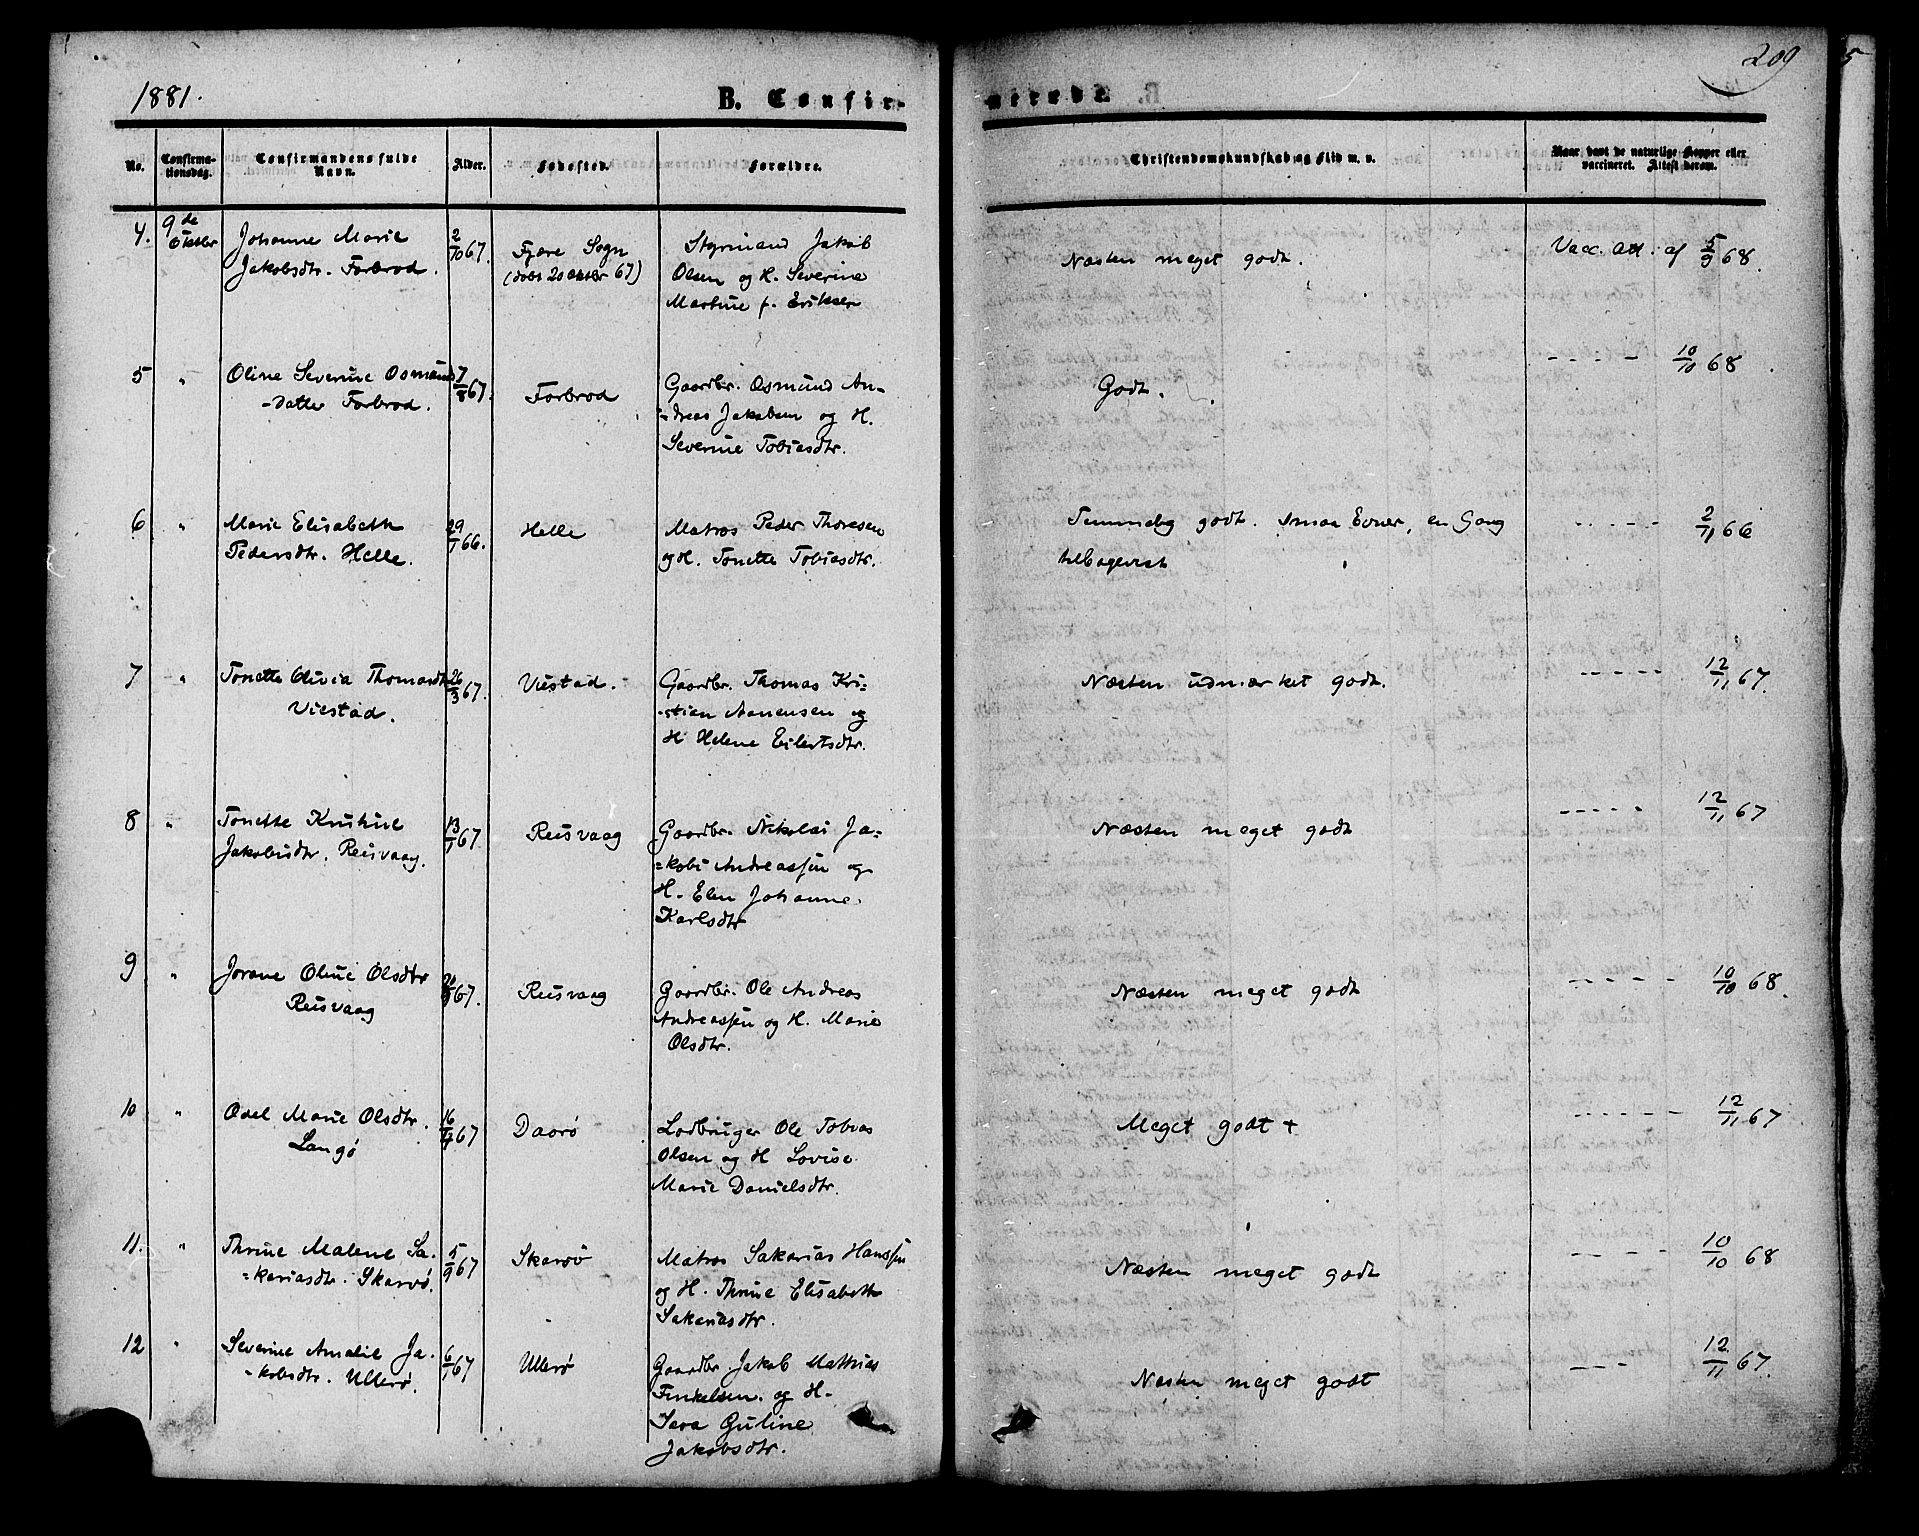 1881.
B. Confir-
merede.
209
No.
Confirma-
tionsdag.
Confirmandens fulde
Navn.
Alder.
Fødested.
Forældre.
Christendomskundskab og Flid m. v.
Naar havt de naturlige Kopper eller
vaccineret. Attest derom.
4. 9de Oktbr
Johanne Marie
Jakobsdtr. Forbrod.
2/10 67.
Fjære Sogn
(døbt 20 Oktbr 67)
Styrmand Jakob
Olsen og H. Severine
Martine f. Eriksen
Næsten meget godt.
Vacc. Att. af 5/9 68.
5 "
Oline Severine Osmunds
-datter Forbrod.
7/8 67.
Forbrod
Gaardbr. Osmund An-
-dreas Jakobsen og H.
Severine Tobiasdtr.
Godt.
- - - - - 10/10 68
6 "
Marie Elisabeth
Pedersdtr. Helle.
29/1 66.
Helle
Matros Peder Thoresen
og H. Tonette Tobiasdtr.
Temmelig godt. Smaa Evner, en Gang
tilbagevist
- - - - - 2/11 66
7 "
Tonette Olivia Thomasdtr
Viestad.
26/3 67.
Viestad.
Gaardbr. Thomas Kri-
-stian Aanensen og
H Helene Eilertsdtr.
Næsten udmærket godt.
- - - - - 12/11 67.
8 "
Tonette Kristine
Jakobsdtr. Reisvaag.
13/1 67.
Reisvaag
Gaardbr. Nikolai Ja-
-kobi Andreassen og
H. Elen Johanne
Karlsdtr
Næsten meget godt
- - - - - 12/11 67
9 "
Jorane Oline Olsdtr
Reisvaag
67.
Reisvaag
Gaardbr. Ole Andreas
Andreassen og H. Marie
Olsdtr.
Næsten meget godt
- - - - - 10/10 68.
10 "
Odel Marie Olsdtr.
Langø
67
Daarø
Lodbruger Ole Tobias
Olsen og H Lovise
Marie Danielsdtr.
Meget godt +
- - - - - 12/11 67
11. "
Thrine Malene Sa-
-kariasdtr. Skarvø.
5/9 67
Skarvø
Matros Sakarias Hanssen
og H. Thrine Elisabeth
Sakariasdtr.
Næsten meget godt
- - - - - 10/10 68
12 "
Severine Amalie Ja-
-kobsdtr. Ullerø.
6/1 67
Ullerø
Gaardbr. Jakob Mathias
Finkelsen. og H.
Sara Guline
Jakobsdtr.
Næsten meget godt
- - - 12/11 67.